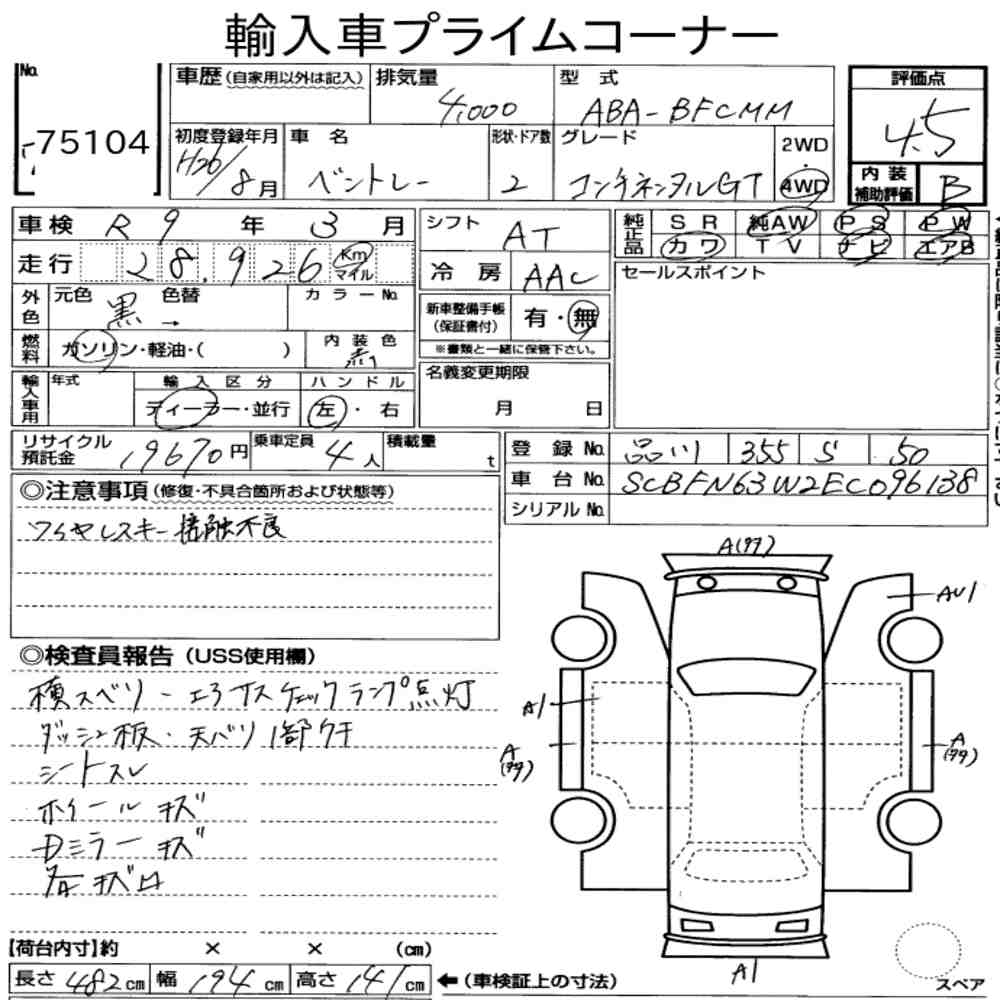 輸入車プライムコーナー
No.
75104
車歴(自家用以外は記入)
排気量
4,000
型 式
ABA-BFCMM
評価点
4.5
初度登録年月
H26/8月
車 名
ベントレー
形状・ドア数
2
グレード
コンチネンタルGT
2WD
4WD
内 装
補助評価
B
車検 R 9 年 3 月
走行 28,926 Km
マイル
外色
元色 黒
色替 →
カラーNo.
燃料
ガソリン・軽油・( )
内 装 色
黒
輸入車用
年式
輸 入 区 分
ディーラー・並行
ハ ン ド ル
左・右
シフト AT
冷 房 AAC
新車整備手帳
(保証書付)
有・無
※書類と一緒に保管下さい。
名義変更期限
月 日
純正品
SR 純AW PS PW
カワ TV ナビ エアB
セールスポイント
リサイクル
預託金
19670円
乗車定員 4人
積載量 t
登 録 No. 品川 355 S 50
車 台 No. SCBFN63W2EC096138
シリアル No.
◎注意事項(修復・不具合箇所および状態等)
ワイヤレスキー接触不良
◎検査員報告(USS使用欄)
横スベリ・エアサスチェックランプ点灯
ダッシュ板・天バリ1部ウキ
シートスレ
ホイールキズ
Dミラーキズ
各キズ凹
A(タタ)
AU1
A1
A
(タタ)
A
(タタ)
A1
【荷台内寸】約 × × (cm)
長さ 482cm 幅 194cm 高さ 141cm
←(車検証上の寸法)
スペア